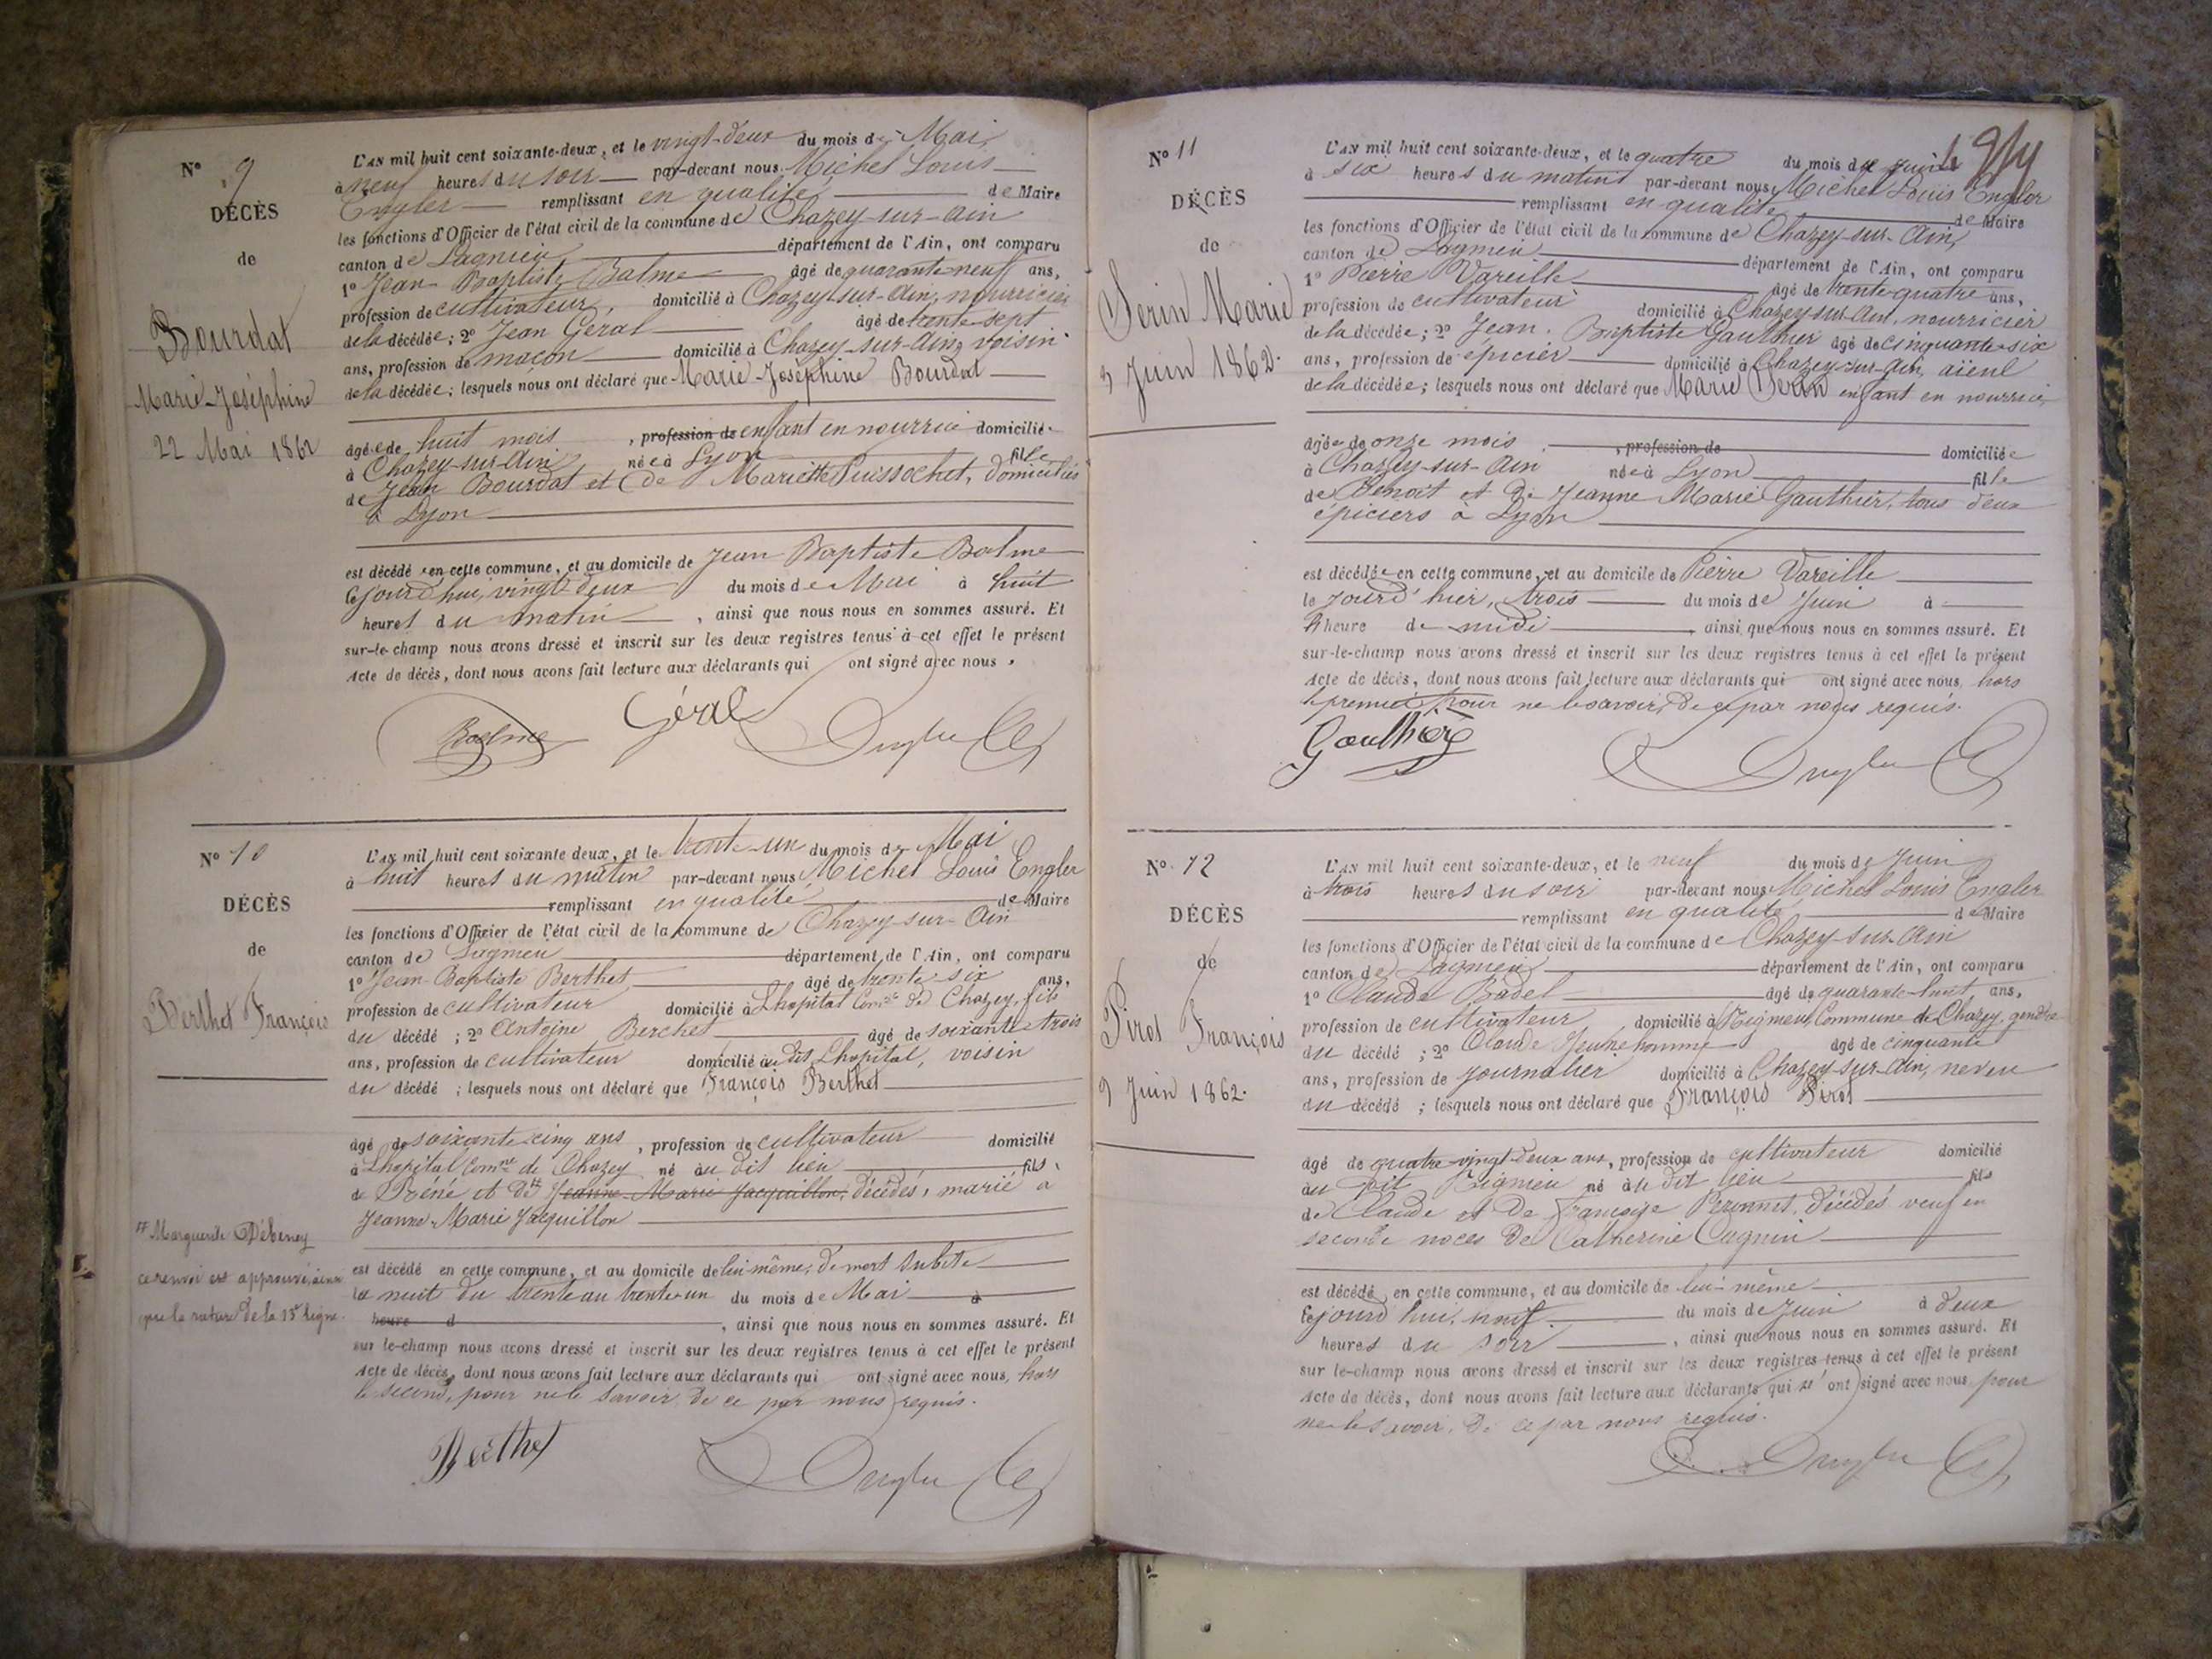 N° 9
DÉCÈS
de
Bourdat
Marie-Joséphine
22 Mai 1862
L'AN mil huit cent soixante-deux, et le vingt-deux du mois de Mai
à neuf heures du soir par-devant nous Michel Louis
Engler remplissant en qualité de Maire
les fonctions d'Officier de l'état civil de la commune de Chazey-sur-Ain
canton de Lagnieu département de l'Ain, ont comparu
1° Jean-Baptiste Balme âgé de quarante-neuf ans,
profession de cultivateur, domicilié à Chazey-sur-Ain, nourricier
de la décédée; 2° Jean Géral âgé de trente-sept
ans, profession de maçon domicilié à Chazey-sur-Ain, voisin
de la décédée; lesquels nous ont déclaré que Marie-Joséphine Bourdat
âgée de huit mois, profession de enfant en nourrice domicilié
à Chazey-sur-Ain née à Lyon fille
de Jean Bourdat et de Mariette Puissochet, domiciliés
à Lyon
est décédée en cette commune, et au domicile de Jean Baptiste Balme
cejourd'hui, vingt-deux du mois de Mai à huit
heures du matin, ainsi que nous nous en sommes assuré. Et
sur-le-champ nous avons dressé et inscrit sur les deux registres tenus à cet effet le présent
Acte de décès, dont nous avons fait lecture aux déclarants qui ont signé avec nous.
Balme Géral Engler
N° 10
DÉCÈS
de
Berthet François
L'AN mil huit cent soixante deux, et le trente-un du mois de Mai
à huit heures du matin par-devant nous Michel Louis Engler
remplissant en qualité de Maire
les fonctions d'Officier de l'état civil de la commune de Chazey-sur-Ain
canton de Lagnieu département de l'Ain, ont comparu
1° Jean-Baptiste Berthet âgé de trente six ans,
profession de cultivateur domicilié à Lhopital Comne de Chazey, fils
du décédé; 2° Antoine Berchet âgé de soixante-trois
ans, profession de cultivateur domicilié au dit Lhopital, voisin
du décédé; lesquels nous ont déclaré que François Berthet
âgé de soixante-cinq ans, profession de cultivateur domicilié
à Lhopital Comne de Chazey né au dit lieu fils
de Béné et de Jeanne-Marie Jacquillon, décédés, marié à
Jeanne-Marie Jacquillon
Marguerite Débeney
ce renvoi est approuvé, ainsi
que la rature de la 13e ligne.
est décédé en cette commune, et au domicile de lui-même, de mort subite
la nuit du trente au trente-un du mois de Mai à
heure d, ainsi que nous nous en sommes assuré. Et
sur le-champ nous avons dressé et inscrit sur les deux registres tenus à cet effet le présent
Acte de décès, dont nous avons fait lecture aux déclarants qui ont signé avec nous, hors
le second, pour ne le savoir de ce par nous requis.
Berthet Engler
N° 11
DÉCÈS
de
Serin Marie
3 Juin 1862.
L'AN mil huit cent soixante-deux, et le quatre du mois de Juin
à six heures du matin par-devant nous, Michel Louis Engler
remplissant en qualité de Maire
les fonctions d'Officier de l'état civil de la commune de Chazey-sur-Ain,
canton de Lagnieu département de l'Ain, ont comparu
1° Pierre Vareille âgé de trente-quatre ans,
profession de cultivateur domicilié à Chazey-sur-Ain, nourricier
de la décédée; 2° Jean-Baptiste Gauthier âgé de cinquante-six
ans, profession de épicier domicilié à Chazey-sur-Ain, aïeul
de la décédée; lesquels nous ont déclaré que Marie Serin enfant en nourrice,
âgée de onze mois, profession de domiciliée
à Chazey-sur-Ain née à Lyon fille
de Benoit et de Jeanne Marie Gauthier, tous deux
épiciers à Lyon
est décédée en cette commune, et au domicile de Pierre Vareille
le jourd'hier, trois du mois de Juin à
heure de midi, ainsi que nous nous en sommes assuré. Et
sur-le-champ nous avons dressé et inscrit sur les deux registres tenus à cet effet le présent
Acte de décès, dont nous avons fait lecture aux déclarants qui ont signé avec nous, hors
le premier, pour ne le savoir, de ce par nous requis.
Gauthier Engler
N° 12
DÉCÈS
de
Pirot François
9 Juin 1862.
L'AN mil huit cent soixante-deux, et le neuf du mois de Juin
à trois heures du soir par-devant nous Michel Louis Engler
remplissant en qualité de Maire
les fonctions d'Officier de l'état civil de la commune de Chazey-sur-Ain
canton de Lagnieu département de l'Ain, ont comparu
1° Claude Badel âgé de quarante-huit ans,
profession de cultivateur domicilié à Rigneux Commune de Chazey, gendre
du décédé; 2° Claude Jeunehomme âgé de cinquante
ans, profession de journalier domicilié à Chazey-sur-Ain, neveu
du décédé; lesquels nous ont déclaré que François Pirot
âgé de quatre-vingt-deux ans, profession de cultivateur domicilié
au dit Rignieu né au dit lieu fils
de Claude et de Françoise Peronnet, décédés veuf en
seconde noces de Catherine Cagnin
est décédé en cette commune, et au domicile de lui-même
cejourd'hui, neuf du mois de Juin à deux
heures du soir, ainsi que nous nous en sommes assuré. Et
sur le-champ nous avons dressé et inscrit sur les deux registres tenus à cet effet le présent
Acte de décès, dont nous avons fait lecture aux déclarants qui n'ont signé avec nous, pour
ne le savoir, de ce par nous requis.
Engler